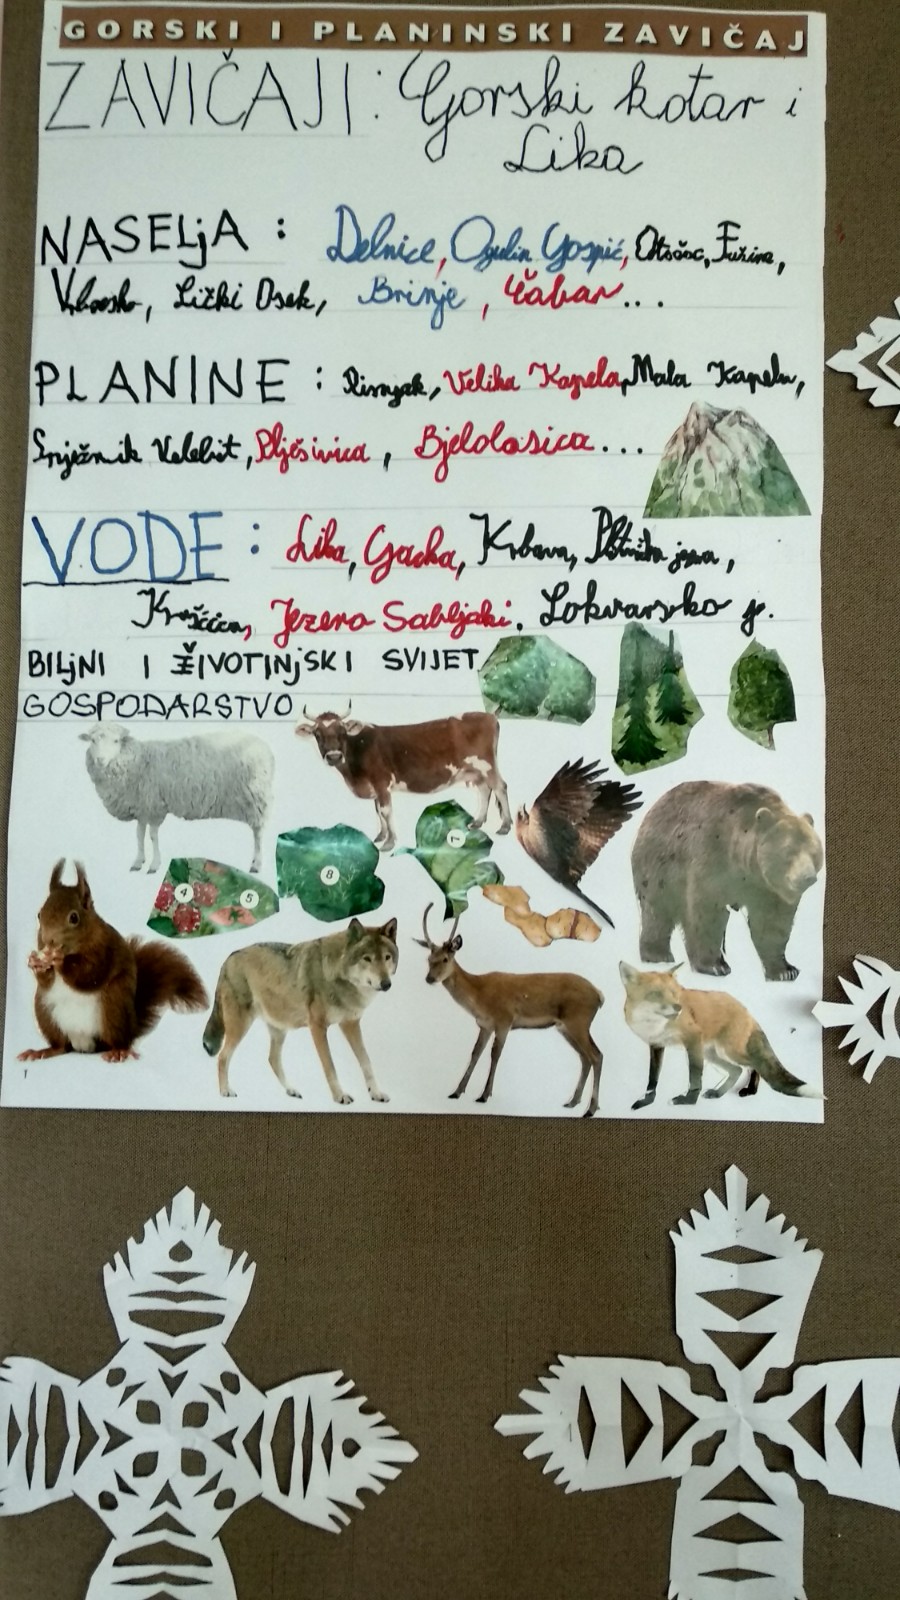 GORSKI I PLANINSKI ZAVIČAJ
ZAVIČAJI: Gorski kotar i
Lika
NASELjA : Delnice, Ogulin Gospić, Otočac, Fužine,
Vrbovsko, Lički Osek, Brinje, Čabar...
PLANINE : Risnjak, Velika Kapela, Mala Kapela,
Snježnik Velebit, Plješivica, Bjelolasica...
VODE : Lika, Gacka, Krbava, Plitvička jezera,
Jezero Sabljaki. Lokvarsko j.
BILjNI I ŽIVOTINjSKI SVIJET
GOSPODARSTVO
7
8
4
5
1